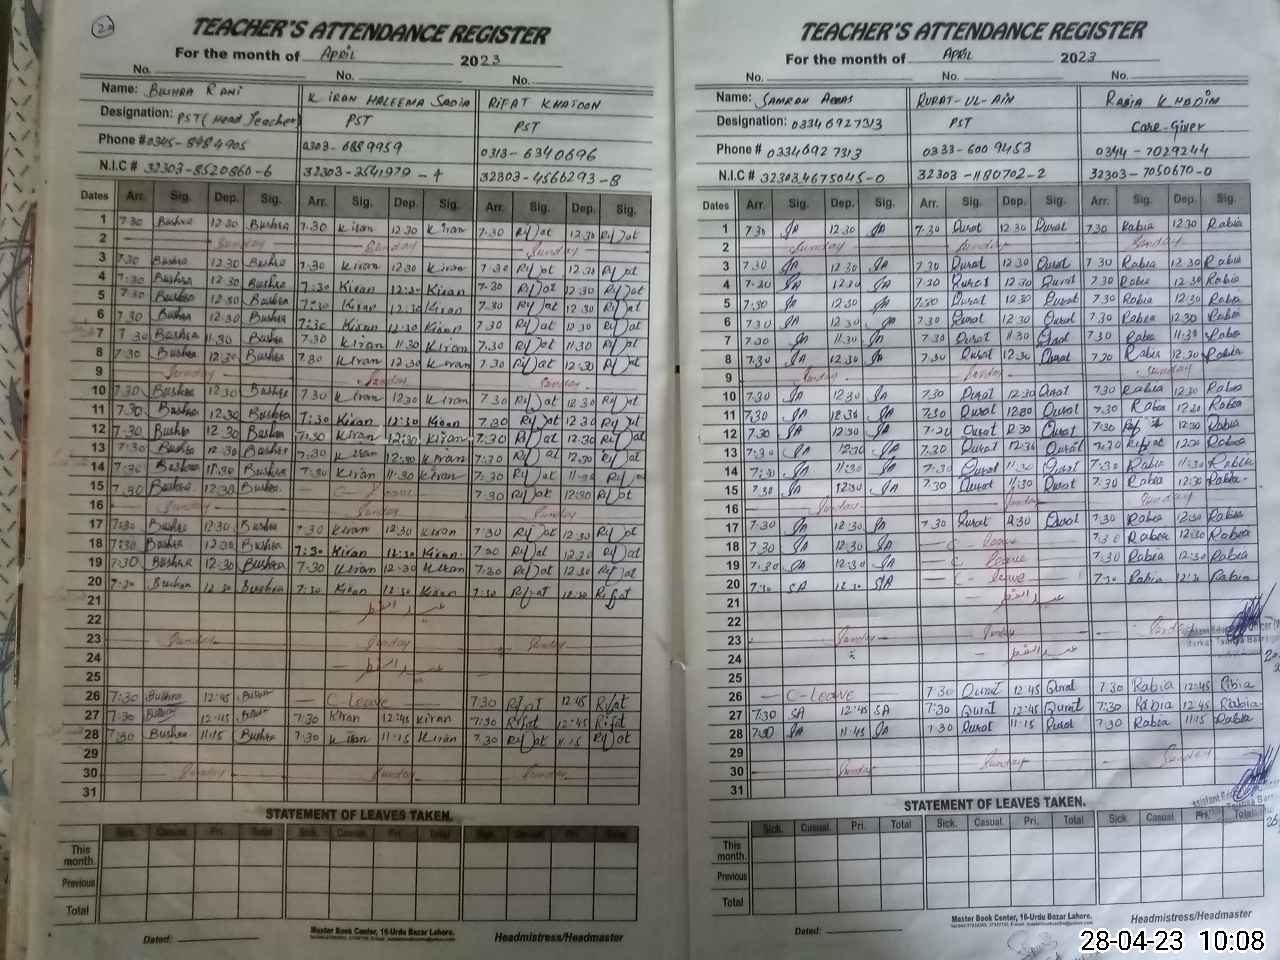 22
TEACHER'S ATTENDANCE REGISTER
For the month of April 2023
No. No. No.
Name: Bushra Rani Kiran Haleema Sadia Rifat Khatoon
Designation: PST (Head Teacher) PST PST
Phone # 0345-8984905 0303-6889959 0313-6340696
N.I.C # 32303-8520860-6 32303-2541970-4 32303-4566293-8
Dates Arr. Sig. Dep. Sig. Arr. Sig. Dep. Sig. Arr. Sig. Dep. Sig.
1 7.30 Bushra 12.30 Bushra 7.30 Kiran 12.30 Kiran 7.30 Rifat 12.30 Rifat
2 Sunday Sunday Sunday
3 7.30 Bushra 12.30 Bushra 7.30 Kiran 12.30 Kiran 7.30 Rifat 12.30 Rifat
4 7.30 Bushra 12.30 Bushra 7:30 Kiran 12:30 Kiran 7.30 Rifat 12.30 Rifat
5 7.30 Bushra 12.30 Bushra 7:30 Kiran 12:30 Kiran 7.30 Rifat 12.30 Rifat
6 7.30 Bushra 12.30 Bushra 7:30 Kiran 12:30 Kiran 7.30 Rifat 12.30 Rifat
7 7.30 Bushra 11.30 Bushra 7.30 Kiran 11.30 Kiran 7.30 Rifat 11.30 Rifat
8 7.30 Bushra 12.30 Bushra 7.30 Kiran 12.30 Kiran 7.30 Rifat 12.30 Rifat
9 Sunday Sunday Sunday
10 7.30 Bushra 12.30 Bushra 7.30 Kiran 12.30 Kiran 7.30 Rifat 12.30 Rifat
11 7.30 Bushra 12.30 Bushra 7:30 Kiran 12:30 Kiran 7.30 Rifat 12.30 Rifat
12 7.30 Bushra 12.30 Bushra 7:30 Kiran 12:30 Kiran 7.30 Rifat 12.30 Rifat
13 7.30 Bushra 12.30 Bushra 7.30 Kiran 12.30 Kiran 7.30 Rifat 12.30 Rifat
14 7.30 Bushra 11.30 Bushra 7.30 Kiran 11.30 Kiran 7.30 Rifat 11.30 Rifat
15 7.30 Bushra 12.30 Bushra C- leave 7.30 Rifat 12.30 Rifat
16 Sunday Sunday Sunday
17 7:30 Bushra 12.30 Bushra 7.30 Kiran 12.30 Kiran 7.30 Rifat 12.30 Rifat
18 7:30 Bushra 12.30 Bushra 7:30 Kiran 12:30 Kiran 7.30 Rifat 12.30 Rifat
19 7.30 Bushra 12.30 Bushra 7.30 Kiran 12.30 Kiran 7.30 Rifat 12.30 Rifat
20 7.30 Bushra 12.30 Bushra 7.30 Kiran 12.30 Kiran 7.30 Rifat 12.30 Rifat
21 عید الفطر
22
23 Sunday Sunday Sunday
24 عید الفطر
25
26 7:30 Bushra 12:45 Bushra C-Leave 7.30 Rifat 12.45 Rifat
27 7.30 Bushra 12.45 Bushra 7:30 Kiran 12:45 Kiran 7:30 Rifat 12:45 Rifat
28 7:30 Bushra 11:15 Bushra 7:30 Kiran 11:15 Kiran 7.30 Rifat 11.15 Rifat
29
30 Sunday Sunday Sunday
31
STATEMENT OF LEAVES TAKEN.
Sick. Casual Pri. Total Sick. Casual Pri. Total Sick. Casual Pri. Total
This month.
Previous
Total
Master Book Center, 16-Urdu Bazar Lahore.
Dated: Headmistress/Headmaster
TEACHER'S ATTENDANCE REGISTER
For the month of April 2023
No. No. No.
Name: Samran Abbas Qurat-ul-Ain Rabia Khadim
Designation: 03346927313 PST Care-Giver
Phone # 03346927313 0333-6009453 0344-7029244
N.I.C # 32303,4675045-0 32303-1180702-2 32303-7050670-0
Dates Arr. Sig. Dep. Sig. Arr. Sig. Dep. Sig. Arr. Sig. Dep. Sig.
1 7.30 SA 12.30 SA 7.30 Qurat 12.30 Qurat 7.30 Rabia 12.30 Rabia
2 Sunday Sunday Sunday
3 7.30 SA 12.30 SA 7.30 Qurat 12.30 Qurat 7.30 Rabia 12.30 Rabia
4 7.30 SA 12.30 SA 7.30 Qurat 12.30 Qurat 7.30 Rabia 12.30 Rabia
5 7.30 SA 12.30 SA 7.30 Qurat 12.30 Qurat 7.30 Rabia 12.30 Rabia
6 7.30 SA 12.30 SA 7.30 Qurat 12.30 Qurat 7.30 Rabia 12.30 Rabia
7 7.30 SA 11.30 SA 7.30 Qurat 11.30 Qurat 7.30 Rabia 11.30 Rabia
8 7.30 SA 12.30 SA 7.30 Qurat 12.30 Qurat 7.30 Rabia 12.30 Rabia
9 Sunday Sunday Sunday
10 7.30 SA 12.30 SA 7.30 Qurat 12.30 Qurat 7.30 Rabia 12.30 Rabia
11 7.30 SA 12.30 SA 7.30 Qurat 12.30 Qurat 7.30 Rabia 12.30 Rabia
12 7.30 SA 12.30 SA 7.30 Qurat 12.30 Qurat 7.30 12.30 Rabia
13 7.30 SA 12.30 SA 7.30 Qurat 12.30 Qurat 7.30 12.30 Rabia
14 7:30 SA 11:30 SA 7.30 Qurat 11.30 Qurat 7.30 Rabia 11.30 Rabia
15 7.30 SA 12.30 SA 7.30 Qurat 11.30 Qurat 7.30 Rabia 12.30 Rabia
16 Sunday Sunday Sunday
17 7.30 SA 12.30 SA 7.30 Qurat 12.30 Qurat 7.30 Rabia 12.30 Rabia
18 7.30 SA 12.30 SA C- leave 7.30 Rabia 12.30 Rabia
19 7.30 SA 12.30 SA C- leave 7.30 Rabia 12.30 Rabia
20 7.30 SA 12.30 SA C- leave 7.30 Rabia 12.30 Rabia
21 عید الفطر
22
23 Sunday Sunday Sunday
24 عید الفطر
25
26 C-Leave 7.30 Qurat 12.45 Qurat 7.30 Rabia 12:45 Rabia
27 7.30 SA 12.45 SA 7.30 Qurat 12:45 Qurat 7:30 Rabia 12:45 Rabia
28 7.30 SA 11.45 SA 7.30 Qurat 11.15 Qurat 7:30 Rabia 11:15 Rabia
29
30 Sunday Sunday Sunday
31
STATEMENT OF LEAVES TAKEN.
Sick. Casual Pri. Total Sick. Casual Pri. Total Sick. Casual Pri. Total
This month.
Previous
Total
Master Book Center, 16-Urdu Bazar Lahore.
Dated: Headmistress/Headmaster
28-04-23 10:08